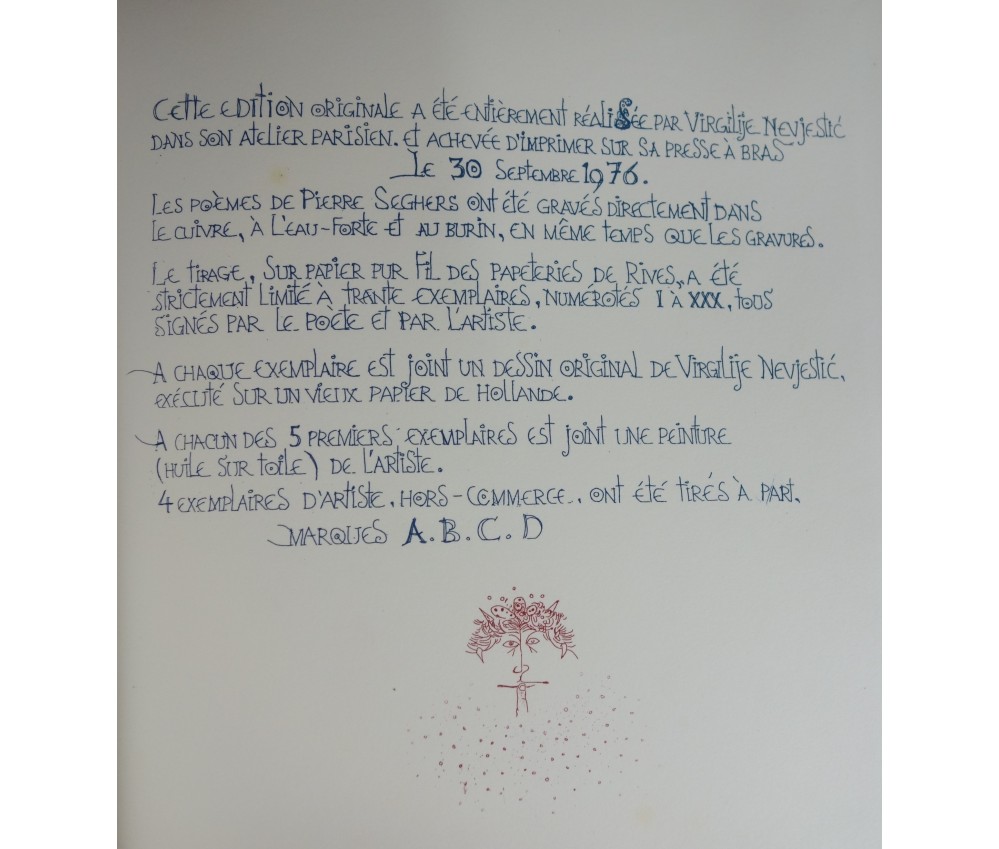 Cette edition originale a été entièrement réalisée par Virgilije Nevjestić
dans son atelier parisien. et achevée d'imprimer sur sa presse à bras
Le 30 Septembre 1976.
Les poèmes de Pierre Seghers ont été gravés directement dans
le cuivre, à l'eau-forte et au burin, en même temps que les gravures.
Le tirage, sur papier pur fil des papeteries de Rives, a été
strictement limité à trante exemplaires, numérotés I à XXX, tous
signés par le poète et par l'artiste.
A chaque exemplaire est joint un dessin original de Virgilije Nevjestić,
exécuté sur un vieux papier de Hollande.
A chacun des 5 premiers exemplaires est joint une peinture
(huile sur toile) de l'artiste.
4 exemplaires d'artiste, hors-commerce, ont été tirés à part.
marques A.B.C.D